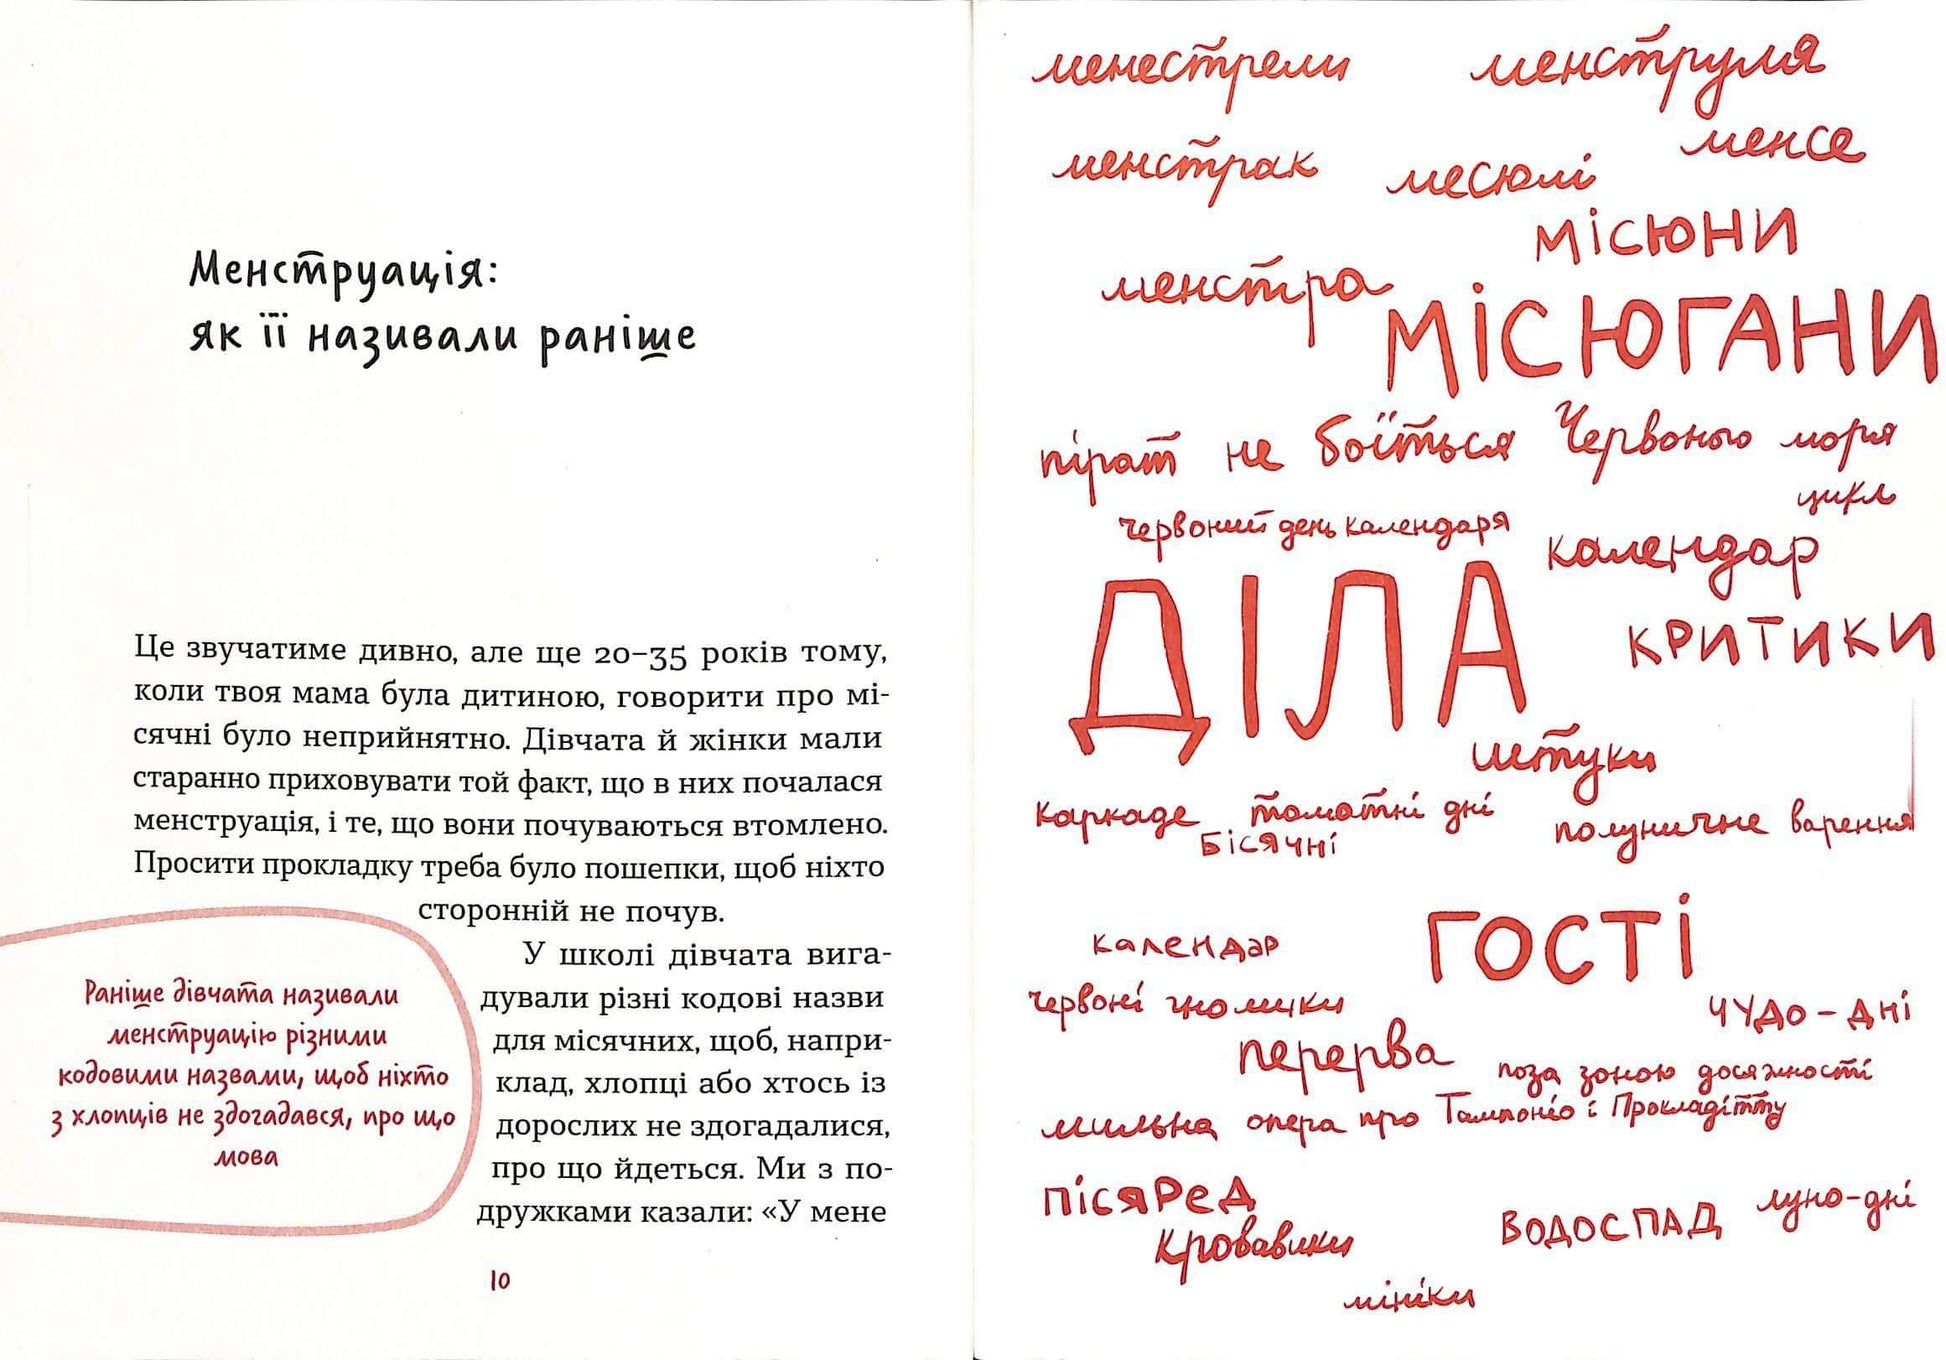 Менструація:
як її називали раніше
Це звучатиме дивно, але ще 20–35 років тому,
коли твоя мама була дитиною, говорити про мі-
сячні було неприйнятно. Дівчата й жінки мали
старанно приховувати той факт, що в них почалася
менструація, і те, що вони почуваються втомлено.
Просити прокладку треба було пошепки, щоб ніхто
сторонній не почув.
У школі дівчата вига-
дували різні кодові назви
для місячних, щоб, напри-
клад, хлопці або хтось із
дорослих не здогадалися,
про що йдеться. Ми з по-
дружками казали: «У мене
Раніше дівчата називали
менструацію різними
кодовими назвами, щоб ніхто
з хлопців не здогадався, про що
мова
10
менестрели
менструля
менстрак
месюлі
менсе
місюни
менстра
місюгани
пірат не боїться Червоного моря
цикл
червоний день календаря
календар
ДІЛА
критики
штуки
каркаде
томатні дні
Бісячні
полуничне варення
гості
календар
червоні гномики
чудо-дні
перерва
поза зоною досяжності
мильна опера про Тампоніо і Прокладітту
пісяред
кровавики
водоспад
луно-дні
мініки